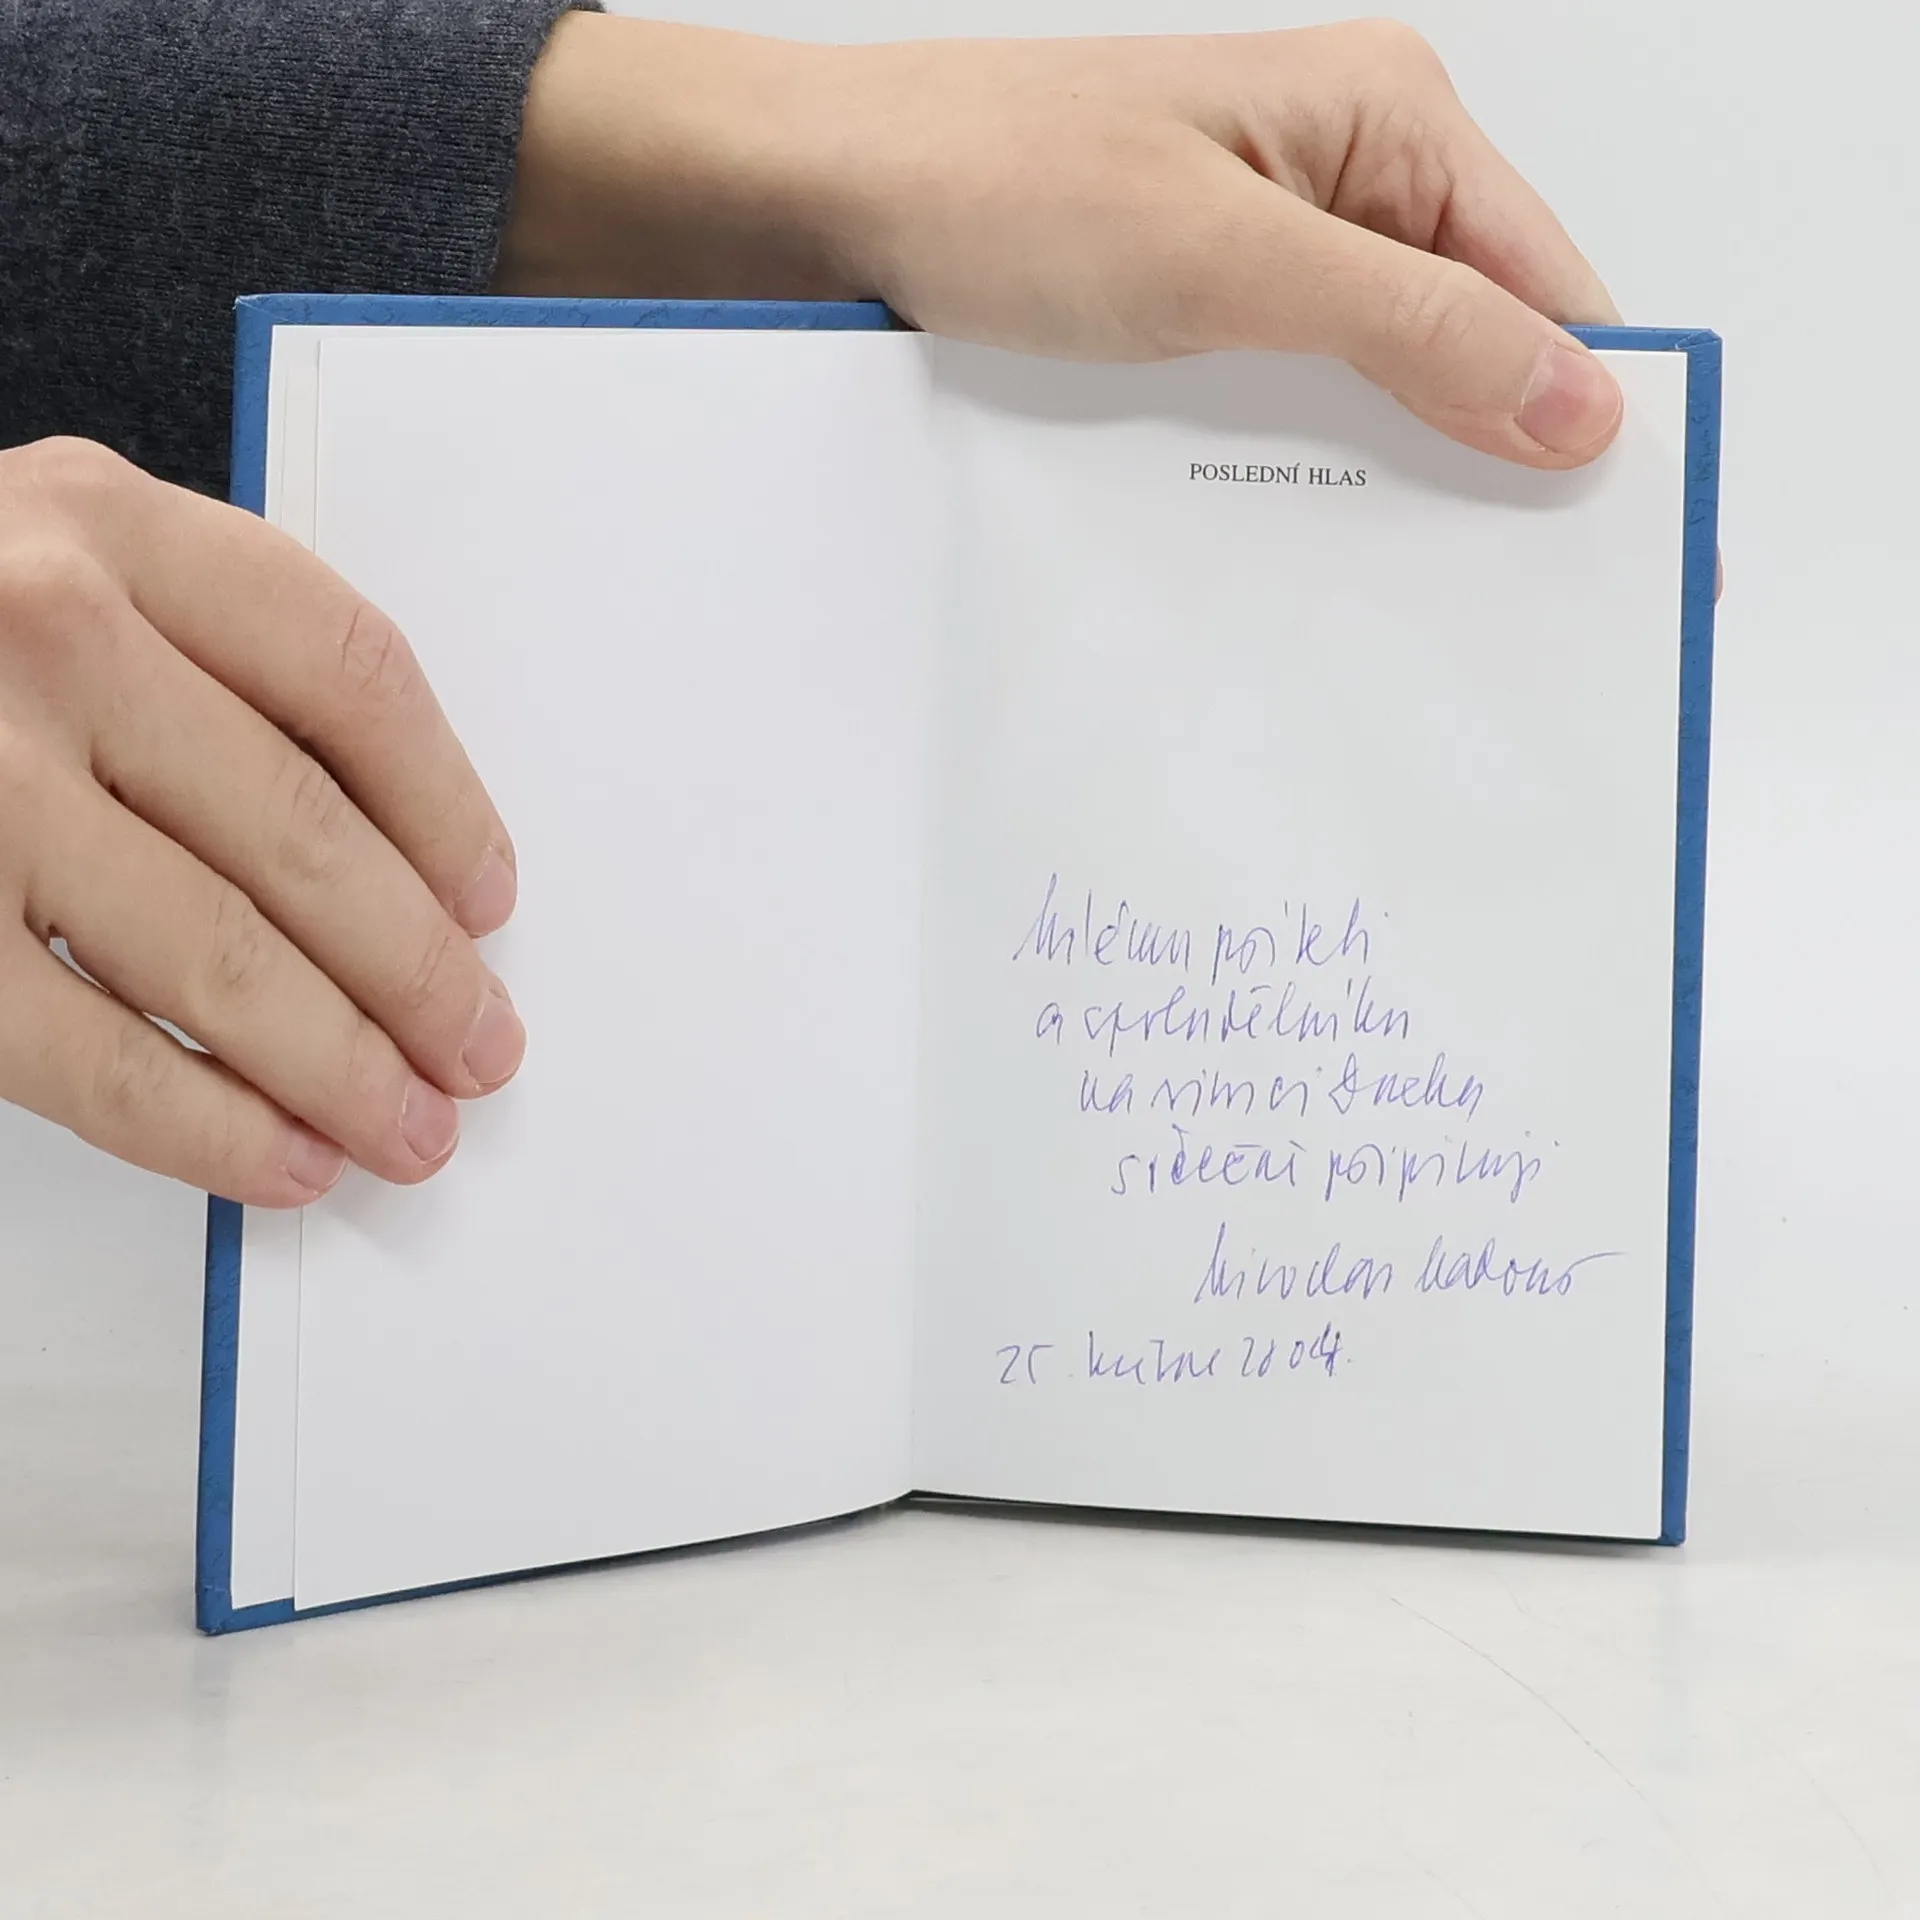 POSLEDNÍ HLAS
Milému příteli
a spoludělníku
na vinici Ducha
srdečně připisuji
Miroslav
25. května 2004.